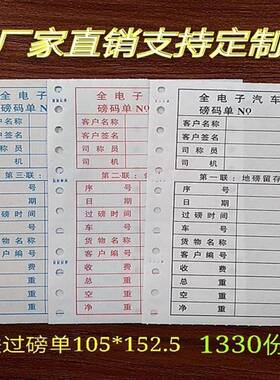 厂家直销支持定制
全 电 子
磅码单 №
客户名称
客户签名
司 称 员
司 机
第三联:
号
期
时间
号
名称
编号
费
重
重
重
全 电 子
磅码单 №
客户名称
客户签名
司 称 员
司 机
第二联:
序 号
日 期
过磅时间
车 号
货物名称
客户编号
收 费
总 重
空 重
净 重
全 电 子 汽 车
磅码单 №
客户名称
客户签名
司 称 员
司 机
第一联: 地磅留存
序 号
日 期
过磅时间
车 号
货物名称
客户编号
收 费
总 重
空 重
净 重
过磅单105*152.5 1330份